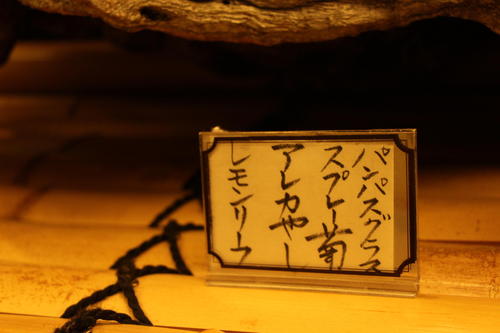 パンパスグラス
スプレー菊
アレカやし
レモンリーフ